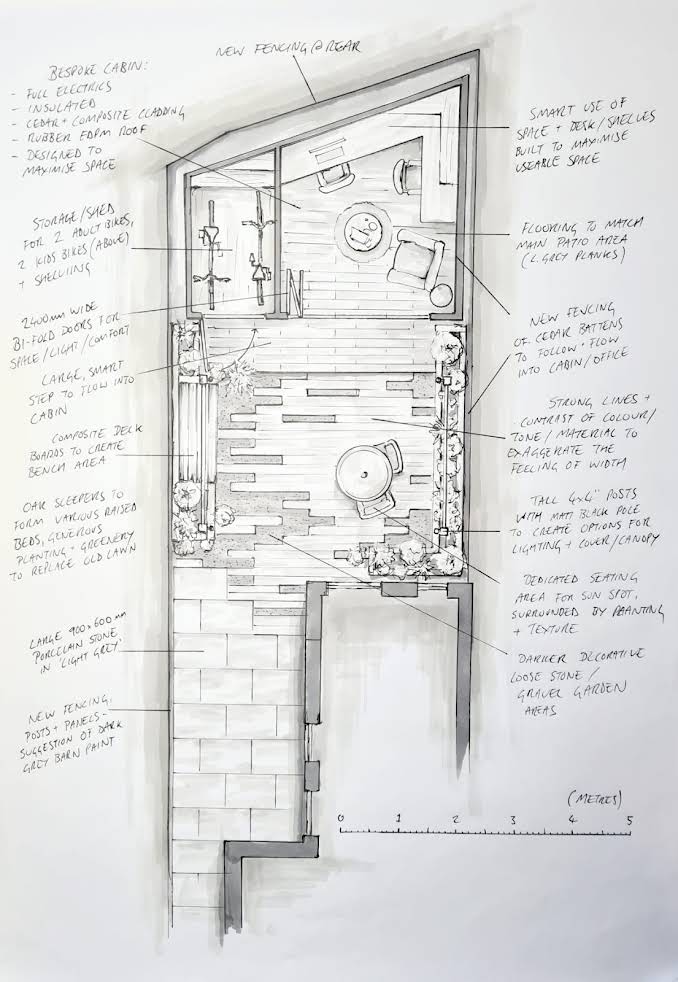 NEW FENCING @ REAR
BESPOKE CABIN:
- FULL ELECTRICS
- INSULATED
- CEDAR + COMPOSITE CLADDING
- RUBBER EDPM ROOF
- DESIGNED TO
MAXIMISE SPACE
STORAGE/SHED
FOR 2 ADULT BIKES,
2 KIDS BIKES (ABOVE)
+ SHELVING
2400mm WIDE
BI-FOLD DOORS FOR
SPACE/LIGHT/COMFORT
LARGE, SMART
STEP TO FLOW INTO
CABIN
COMPOSITE DECK
BOARDS TO CREATE
BENCH AREA
OAK SLEEPERS TO
FORM VARIOUS RAISED
BEDS, GENEROUS
PLANTING + GREENERY
TO REPLACE OLD LAWN
LARGE 900x600mm
PORCELAIN STONE
IN 'LIGHT GREY'
NEW FENCING,
POSTS + PANELS -
SUGGESTION OF DARK
GREY BARN PAINT
SMART USE OF
SPACE + DESK/SHELVES
BUILT TO MAXIMISE
USEABLE SPACE
FLOORING TO MATCH
MAIN PATIO AREA
(L. GREY PLANKS)
NEW FENCING
OF CEDAR BATTENS
TO FOLLOW + FLOW
INTO CABIN/OFFICE
STRONG LINES +
CONTRAST OF COLOUR/
TONE/MATERIAL TO
EXAGGERATE THE
FEELING OF WIDTH
TALL 4x4" POSTS
WITH MATT BLACK POLE
TO CREATE OPTIONS FOR
LIGHTING + COVER/CANOPY
DEDICATED SEATING
AREA FOR SUN SPOT,
SURROUNDED BY PLANTING
+ TEXTURE
DARKER DECORATIVE
LOOSE STONE/
GRAVEL GARDEN
AREAS
(METRES)
0 1 2 3 4 5